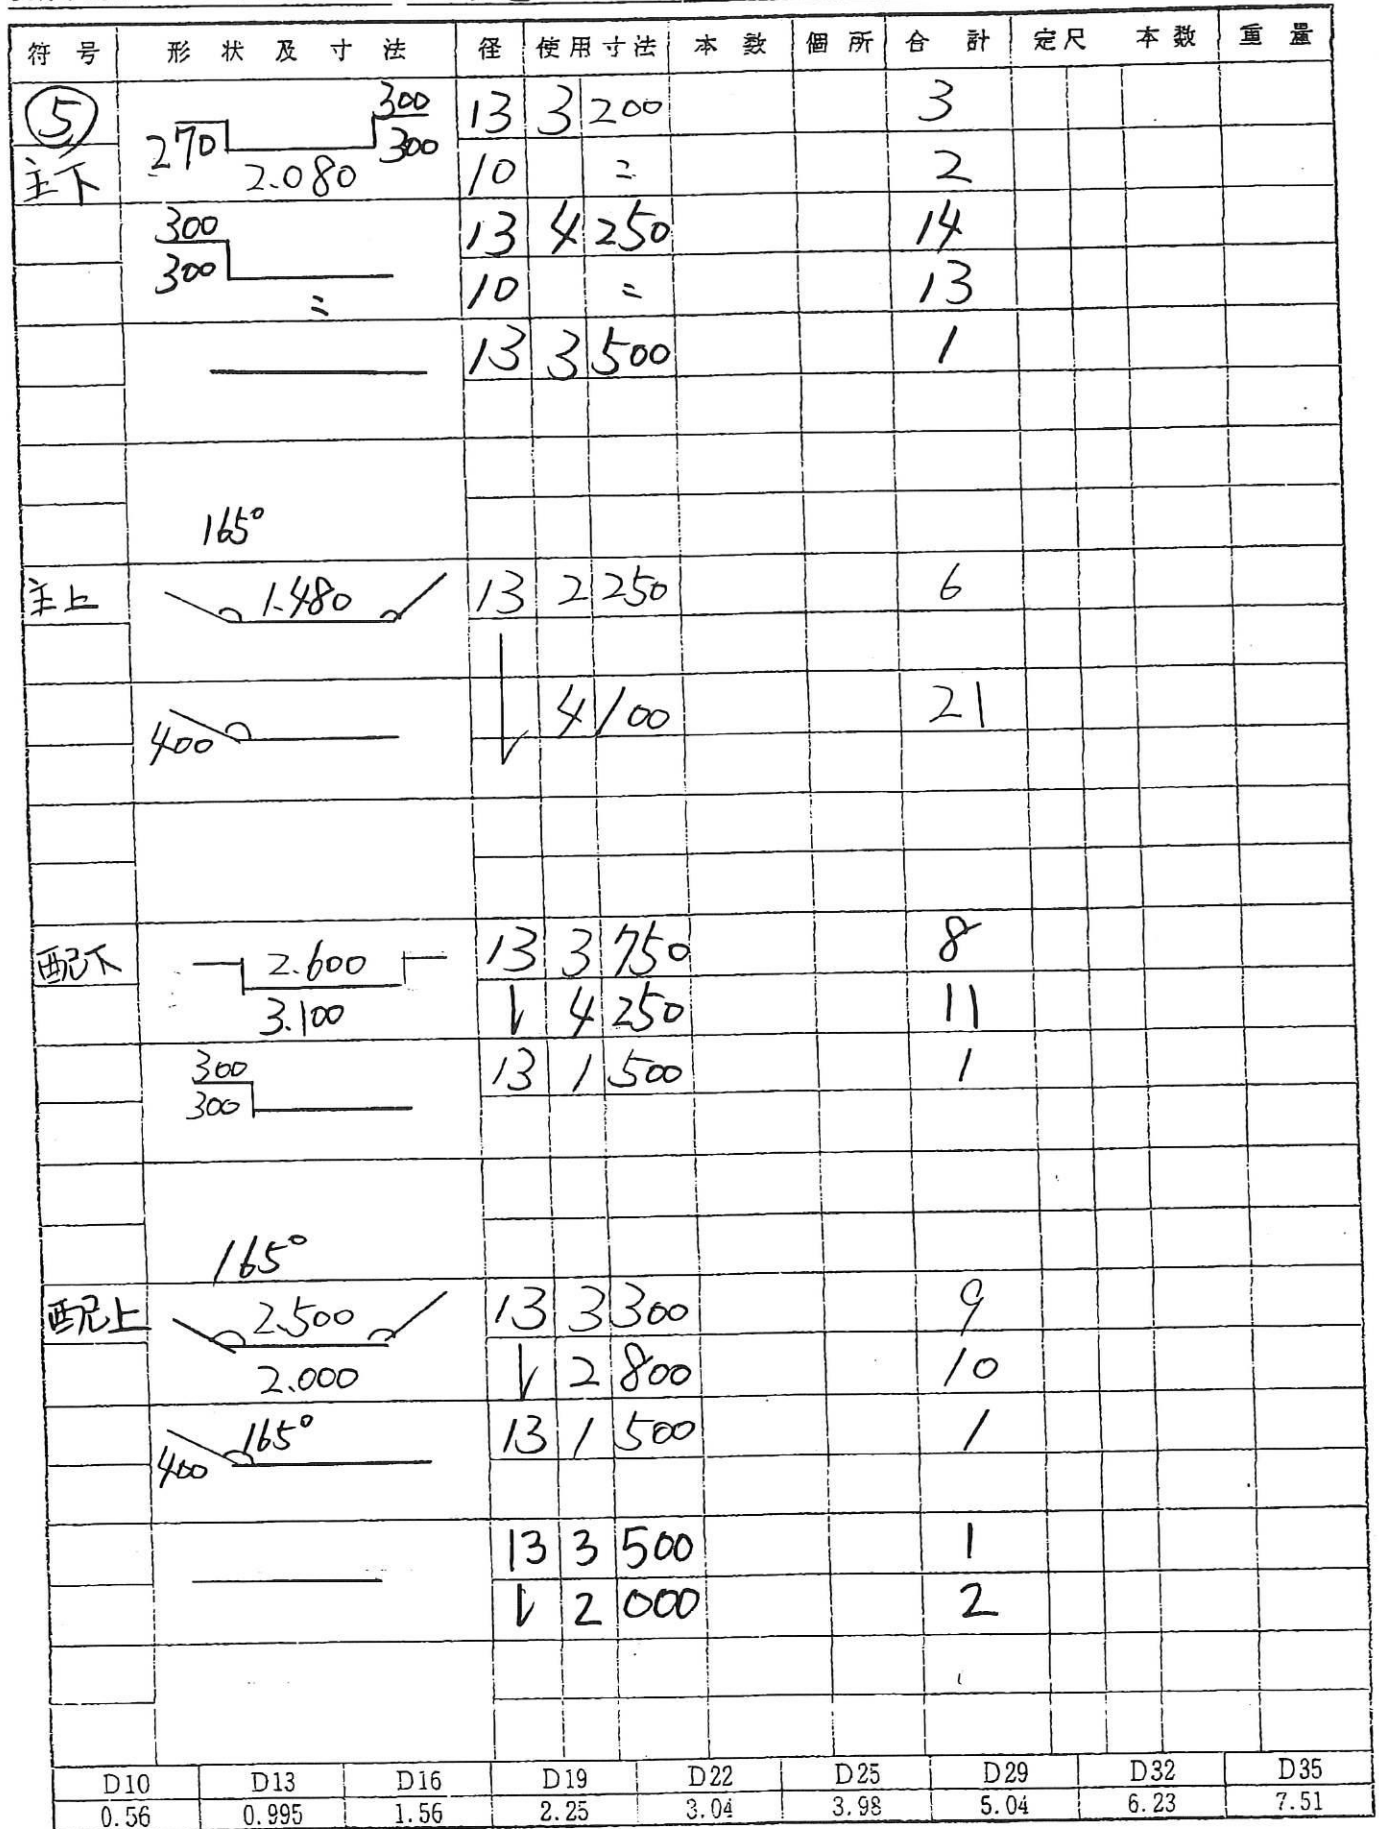 符号 形状及寸法 径 使用寸法 本数 個所 合計 定尺 本数 重量
⑤ 300 13 3 200 3
270 300
主下 2.080 10 〃 2
300 13 4 250 14
300 〃 10 〃 13
13 3 500 1
165°
主上 1.480 13 2 250 6
400 ↓ 4 100 21
配下 2.600 13 3 750 8
3.100 ↓ 4 250 11
300 13 1 500 1
300
165°
配上 2.500 13 3 300 9
2.000 ↓ 2 800 10
400 165° 13 1 500 1
13 3 500 1
↓ 2 000 2
D10 D13 D16 D19 D22 D25 D29 D32 D35
0.56 0.995 1.56 2.25 3.04 3.98 5.04 6.23 7.51